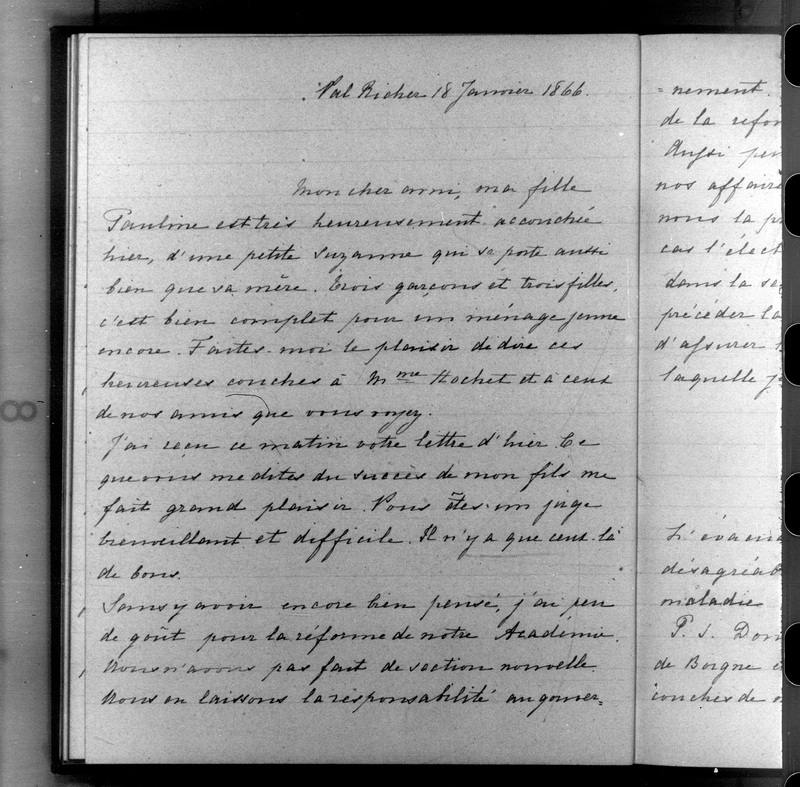 Val Richer 18 Janvier 1866.
Mon cher ami, ma fille
Pauline est très heureusement accouchée
hier, d'une petite Suzanne qui se porte aussi
bien que sa mère. Trois garçons et trois filles,
c'est bien complet pour un ménage jeune
encore. Faites-moi le plaisir de dire ces
heureuses couches à Mme Hochet et à ceux
de nos amis que vous voyez.
J'ai reçu ce matin votre lettre d'hier. Ce
que vous me dites du succès de mon fils me
fait grand plaisir. Vous êtes un juge
bienveillant et difficile. Il n'y a que ceux-là
de bons.
Sans y avoir encore bien pensé, j'ai peu
de goût pour la réforme de notre Académie.
Nous n'avons pas fait de section nouvelle.
Nous en laissons la responsabilité au gouver=
=nement.
de la refor
Aussi peu
nos affaire
nous la pr
cas l'élect
dans la se
précéder la
d'assurer
laquelle
L'évan
désagréab
maladie
P. S. Don
de Borgne
couches de
8